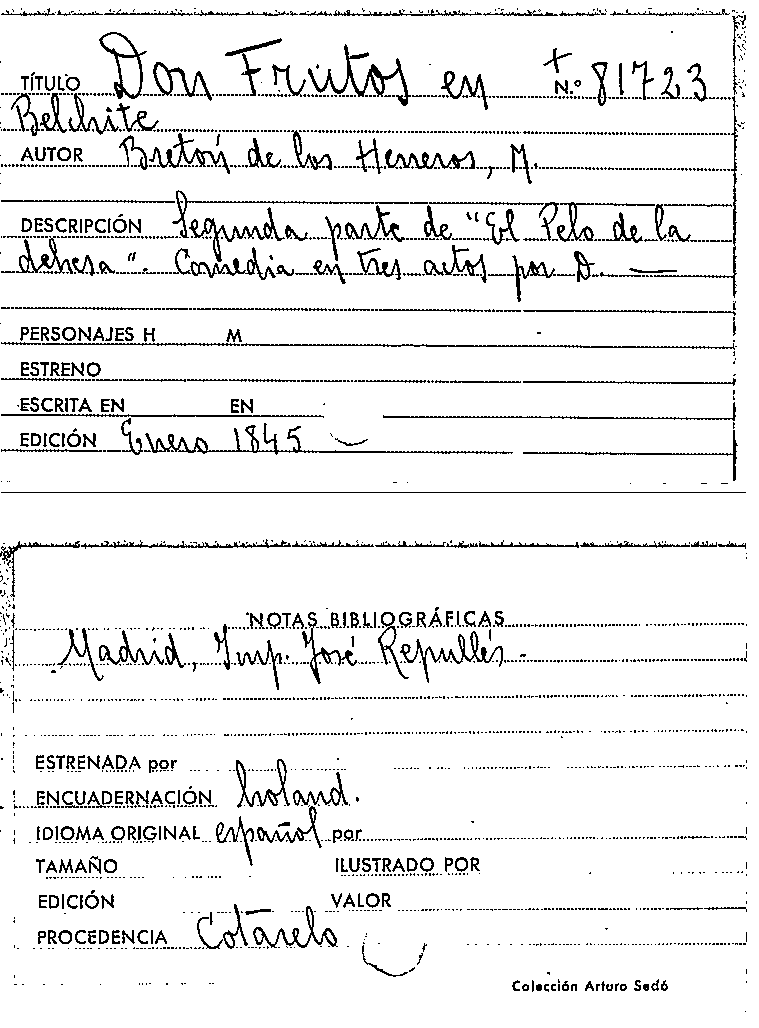 TÍTULO Don Frutos en + N.º 81723
Belchite
AUTOR Bretón de los Herreros, M.
DESCRIPCIÓN Segunda parte de "El Pelo de la
dehesa". Comedia en tres actos por D. —
PERSONAJES H M
ESTRENO
ESCRITA EN EN
EDICIÓN Enero 1845
NOTAS BIBLIOGRÁFICAS
Madrid, Imp. José Repullés.
ESTRENADA por
ENCUADERNACIÓN holand.
IDIOMA ORIGINAL español por
TAMAÑO ILUSTRADO POR
EDICIÓN VALOR
PROCEDENCIA Cotarelo
Colección Arturo Sedó